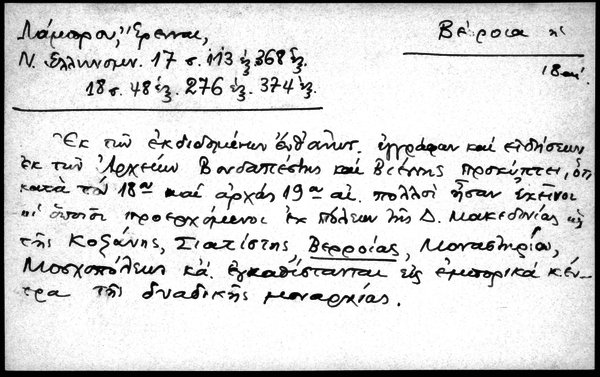 Λάμπρου, Ἔρευναι,
Βέροια
Ν. Ἑλληνομν. 17 σ. 113 ἑξ. 368 ἑξ.
18 αἰ.
18 σ. 48 ἑξ. 276 ἑξ. 374 ἑξ.
Ἐκ τῶν ἐκδιδομένων ἐγγράφων καὶ εἰδήσεων
ἐκ τῶν Ἀρχείων Βουδαπέστης καὶ Βιέννης προκύπτει, ὅτι
κατὰ τὸν 18ον καὶ ἀρχὰς 19ου αἰ. πολλοὶ ἦσαν ἐκεῖνοι
οἱ ὁποῖοι προερχόμενοι ἐκ πόλεων τῆς Δ. Μακεδονίας ὡς
τῆς Κοζάνης, Σιατίστης Βερροίας, Μοναστηρίου,
Μοσχοπόλεως κἀ. ἐγκαθίστανται εἰς ἐμπορικὰ κέν-
τρα τῆς δυαδικῆς μοναρχίας.